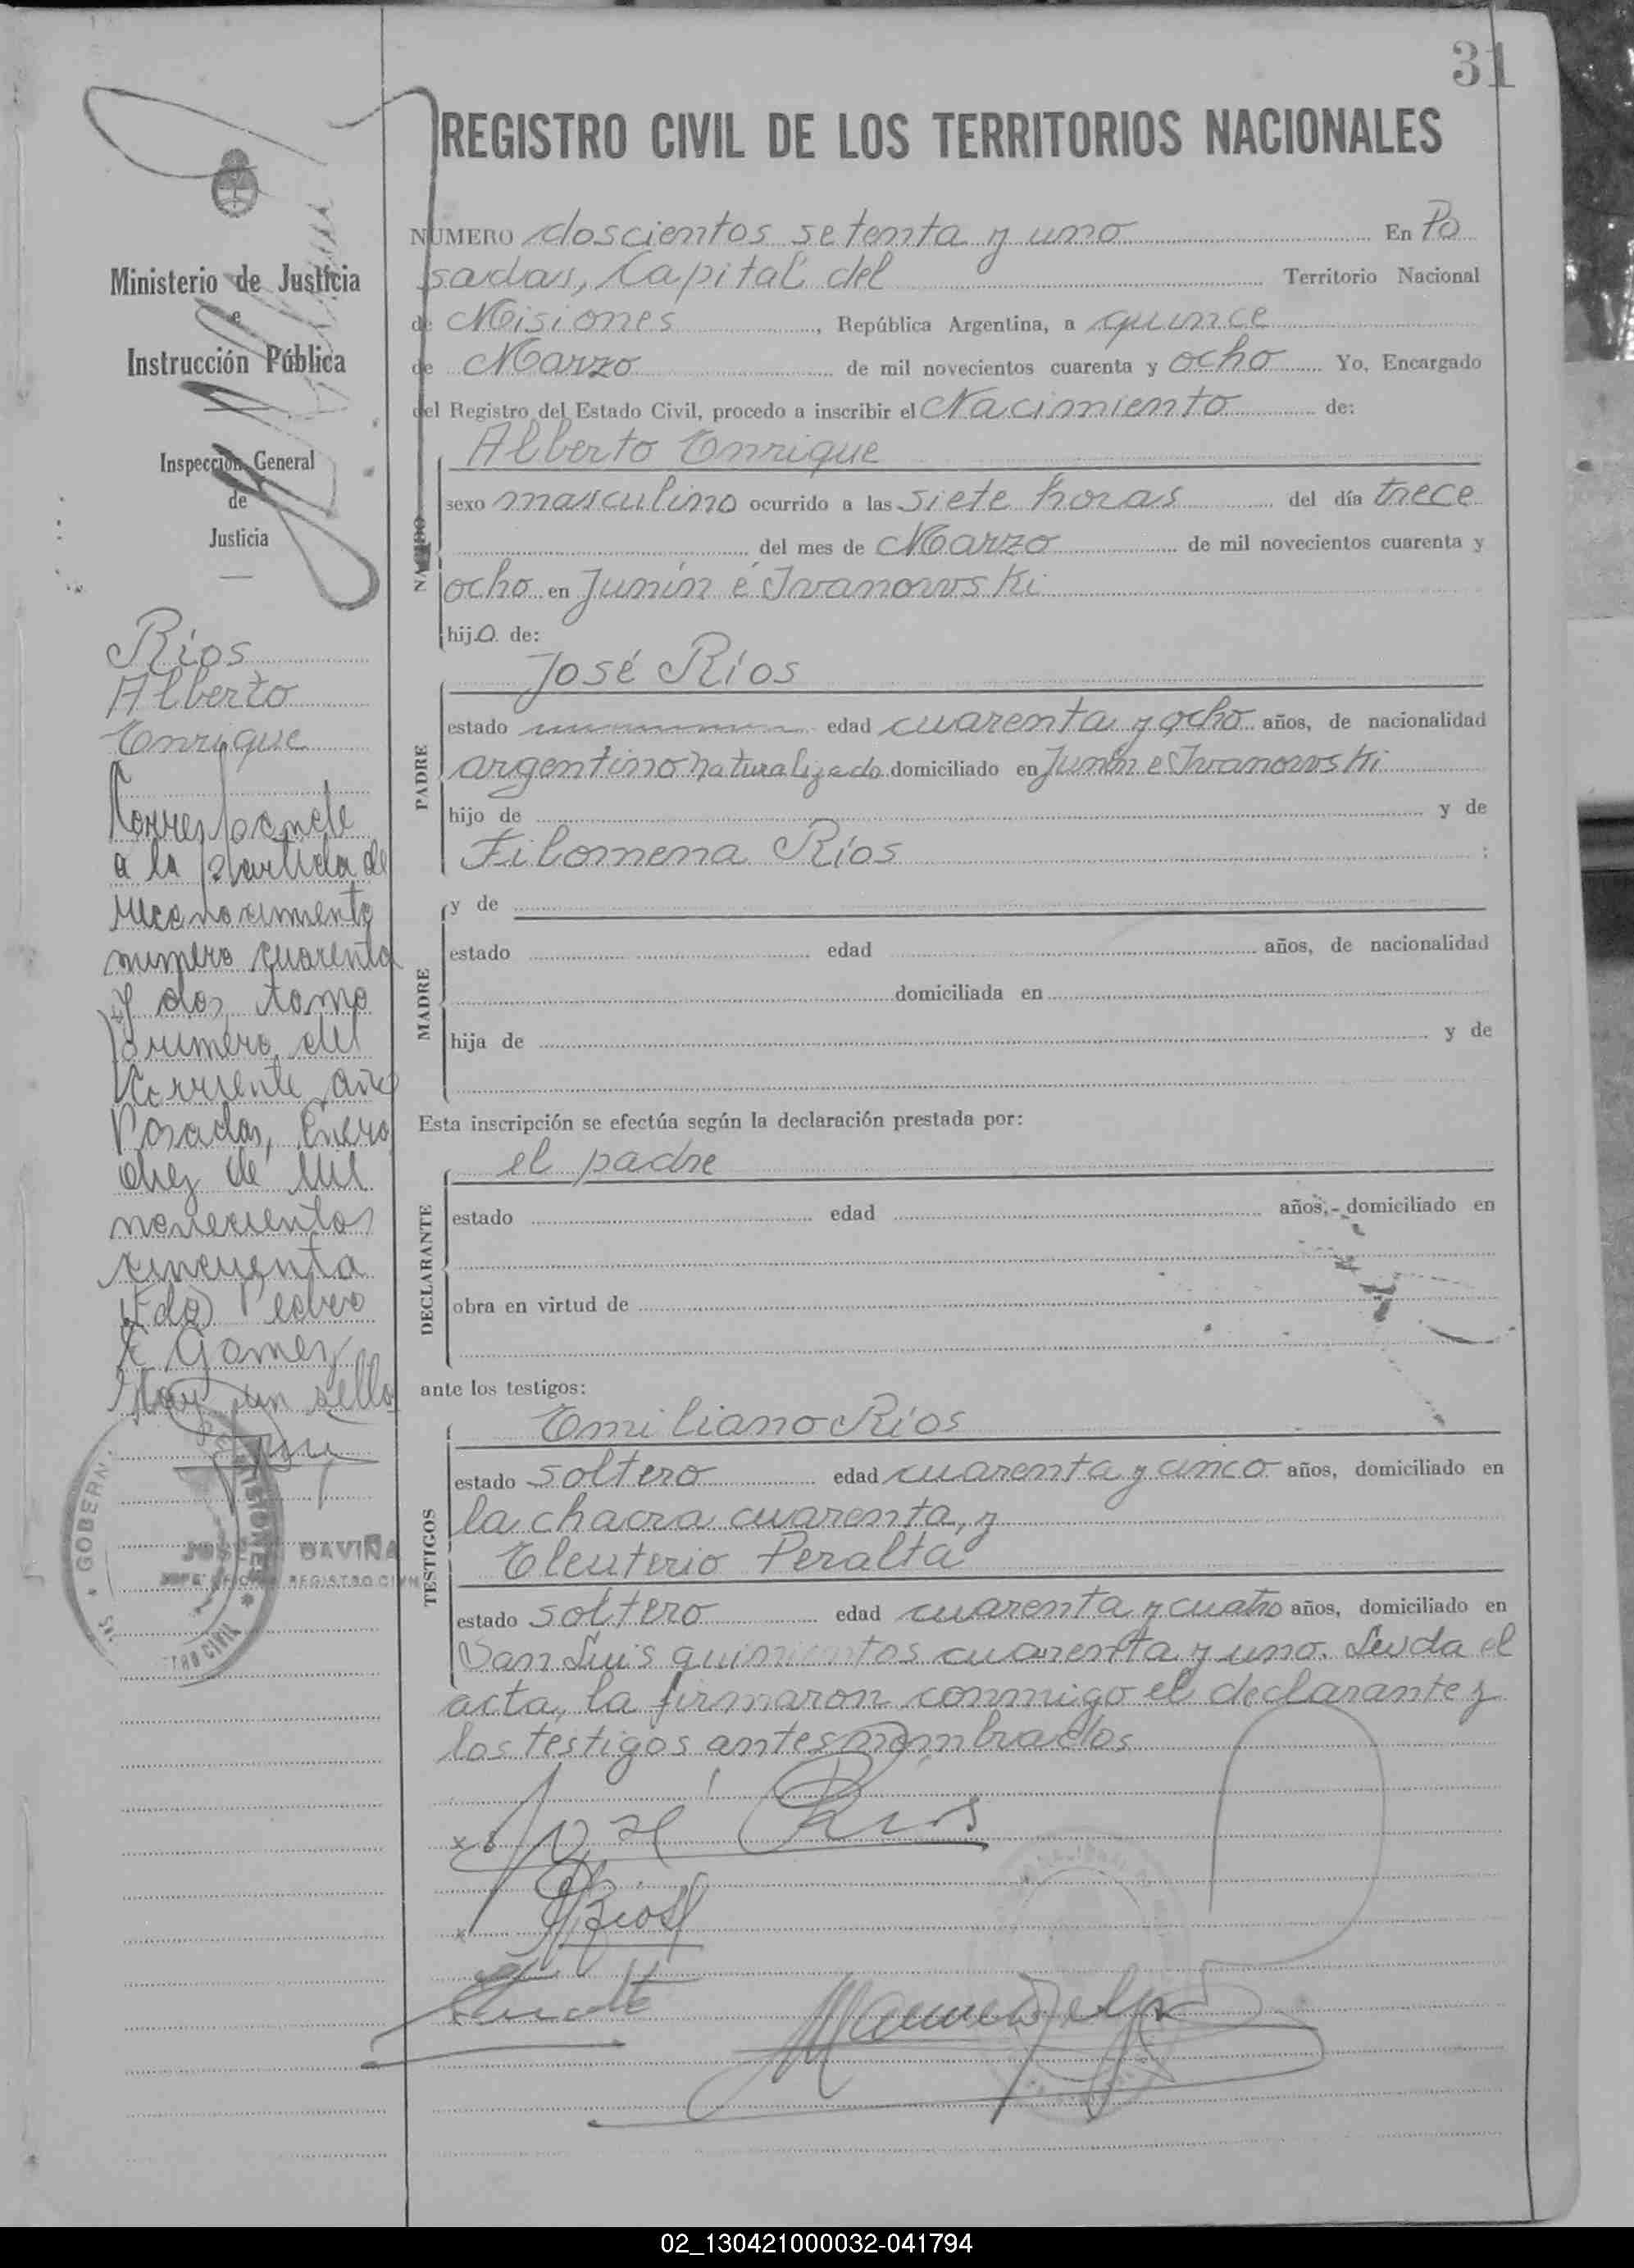 31
REGISTRO CIVIL DE LOS TERRITORIOS NACIONALES
Ministerio de Justicia
e
Instrucción Pública
Inspección General
de
Justicia
Ríos
Alberto
Enrique
Corresponde
a la partida de
reconocimiento
número cuarenta
y dos, tomo
primero del
corriente año
Posadas, Enero
diez de mil
novecientos
cincuenta
(Fdo) Pedro
E Gomez
Hay un sello
GOBERN.
MISIONES
CIVIL
JOSE DAVIÑA
JEFE OFICINA REGISTRO CIVIL
NÚMERO doscientos setenta y uno En Po
sadas, Capital del Territorio Nacional
de Misiones, República Argentina, a quince
de Marzo de mil novecientos cuarenta y ocho Yo, Encargado
del Registro del Estado Civil, procedo a inscribir el Nacimiento de:
Alberto Enrique
NACIDO
sexo masculino ocurrido a las siete horas del día trece
del mes de Marzo de mil novecientos cuarenta y
ocho en Junín é Ivanowski
hijo de:
José Ríos
PADRE
estado edad cuarenta y ocho años, de nacionalidad
argentino naturalizado domiciliado en Junín e Ivanowski
hijo de y de
Filomena Ríos ;
MADRE
y de
estado edad años, de nacionalidad
domiciliada en
hija de y de
Esta inscripción se efectúa según la declaración prestada por:
el padre
DECLARANTE
estado edad años, domiciliado en
obra en virtud de
ante los testigos:
Emiliano Ríos
TESTIGOS
estado soltero edad cuarenta y cinco años, domiciliado en
la chacra cuarenta, y
Eleuterio Peralta
estado soltero edad cuarenta y cuatro años, domiciliado en
San Luis quinientos cuarenta y uno. Leida el
acta, la firmaron conmigo el declarante y
los testigos antes nombrados
x José Rios
x Rios
02_130421000032-041794